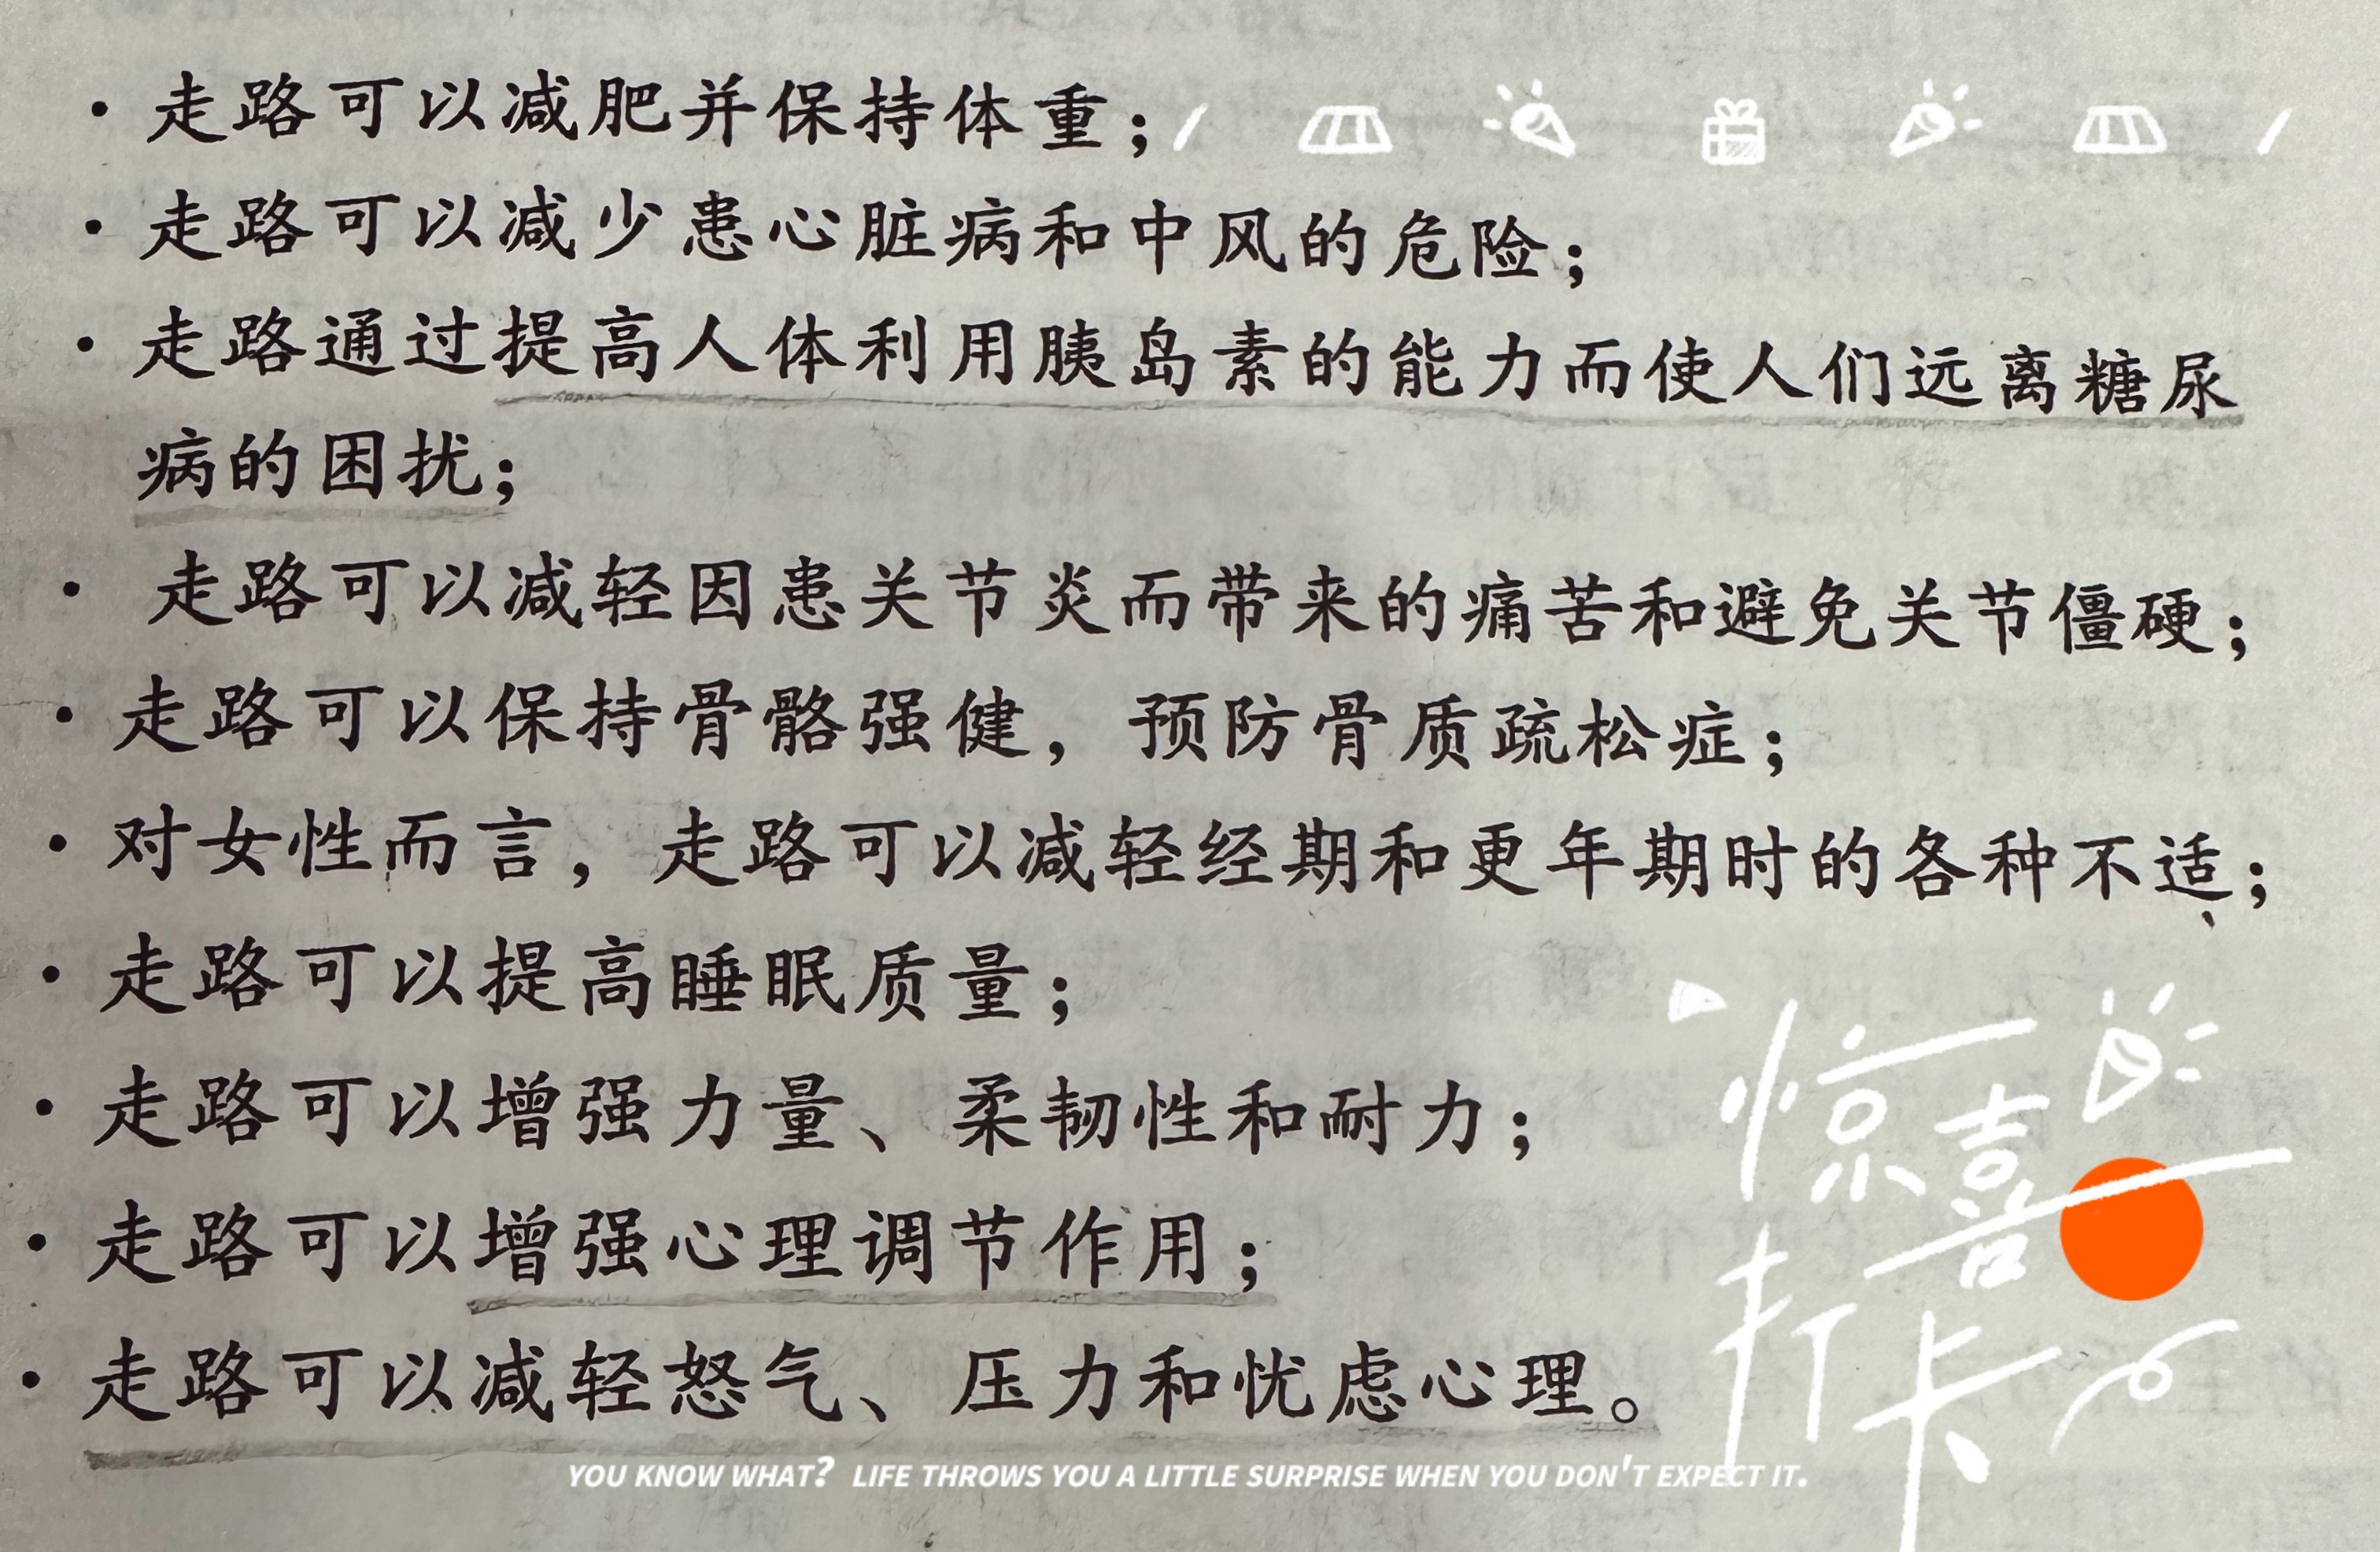 · 走路可以减肥并保持体重；
· 走路可以减少患心脏病和中风的危险；
· 走路通过提高人体利用胰岛素的能力而使人们远离糖尿
病的困扰；
· 走路可以减轻因患关节炎而带来的痛苦和避免关节僵硬；
· 走路可以保持骨骼强健，预防骨质疏松症；
· 对女性而言，走路可以减轻经期和更年期时的各种不适；
· 走路可以提高睡眠质量；
· 走路可以增强力量、柔韧性和耐力；
· 走路可以增强心理调节作用；
· 走路可以减轻怒气、压力和忧虑心理。
惊喜
打卡
YOU KNOW WHAT? LIFE THROWS YOU A LITTLE SURPRISE WHEN YOU DON'T EXPECT IT.